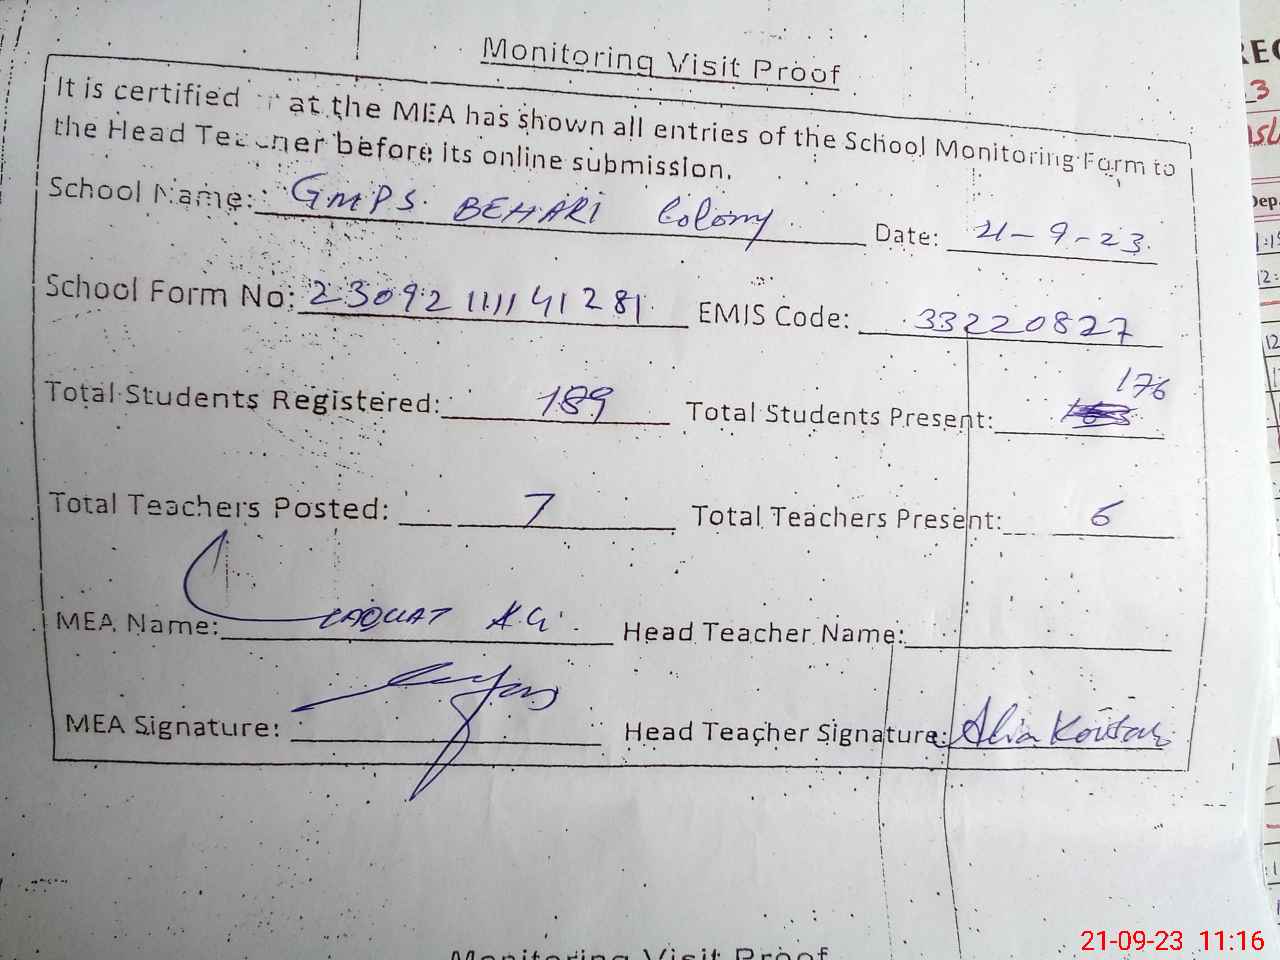 Monitoring Visit Proof
It is certified at the MEA has shown all entries of the School Monitoring Form to
the Head Teacher before its online submission.
School Name: GMPS. BEHARI Colony Date: 21-9-23.
School Form No: 230921111141281 EMIS Code: 33220827
Total Students Registered: 189 Total Students Present: 176
Total Teachers Posted: 7 Total Teachers Present: 6
MEA Name: LIAQUAT Head Teacher Name:
MEA Signature: Head Teacher Signature: Alia Kousar
Monitoring Visit Proof
21-09-23 11:16